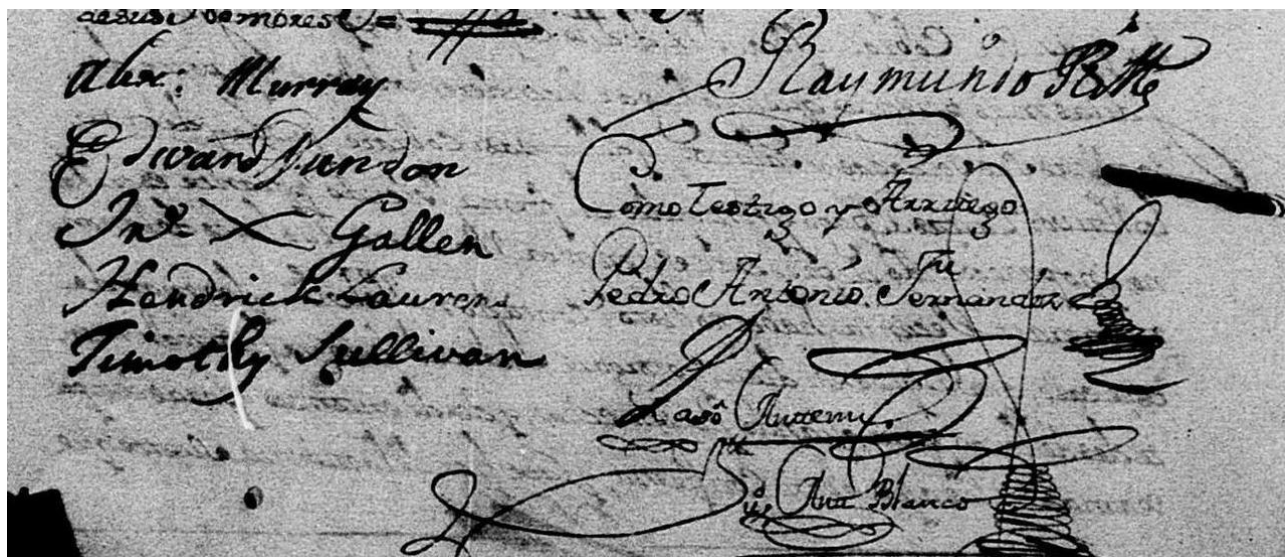 de sus nombres =
Alex: Murray
Edward Dundon
Jnº X Gallen
Hendrick Laurens
Timothy Sullivan
Raymundo
Como Testigo y
Pedro Antonio Fernandez
Passó Antte my.
Ant Blanco